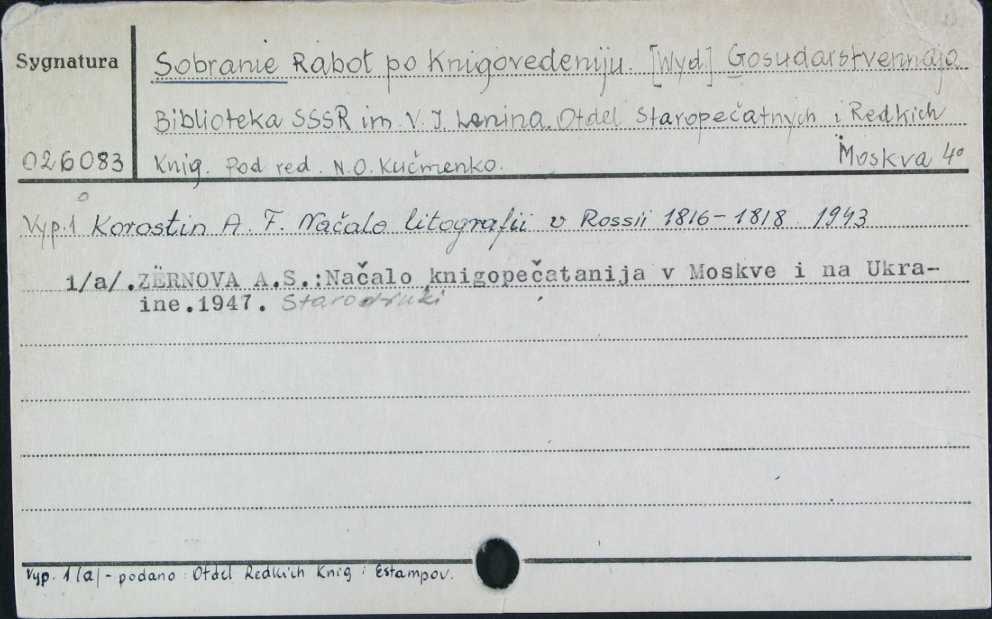 Sygnatura
Sobranie Rabot po Knigovedeniju. [Wyd.] Gosudarstvennaja
Biblioteka SSSR im. V. I. Lenina. Otdel Staropečatnych i Redkich
026083 Knig. Pod red. N.O. Kučmenko. Moskva 4°
Vyp.1 Korostin A. F. Načalo litografii v Rossii 1816-1818 1943
1/a/.ZËRNOVA A.S.:Načalo knigopečatanija v Moskve i na Ukra-
ine.1947. Starodruki
Vyp. 1/a/ - podano: Otdel Redkich Knig i Estampov.